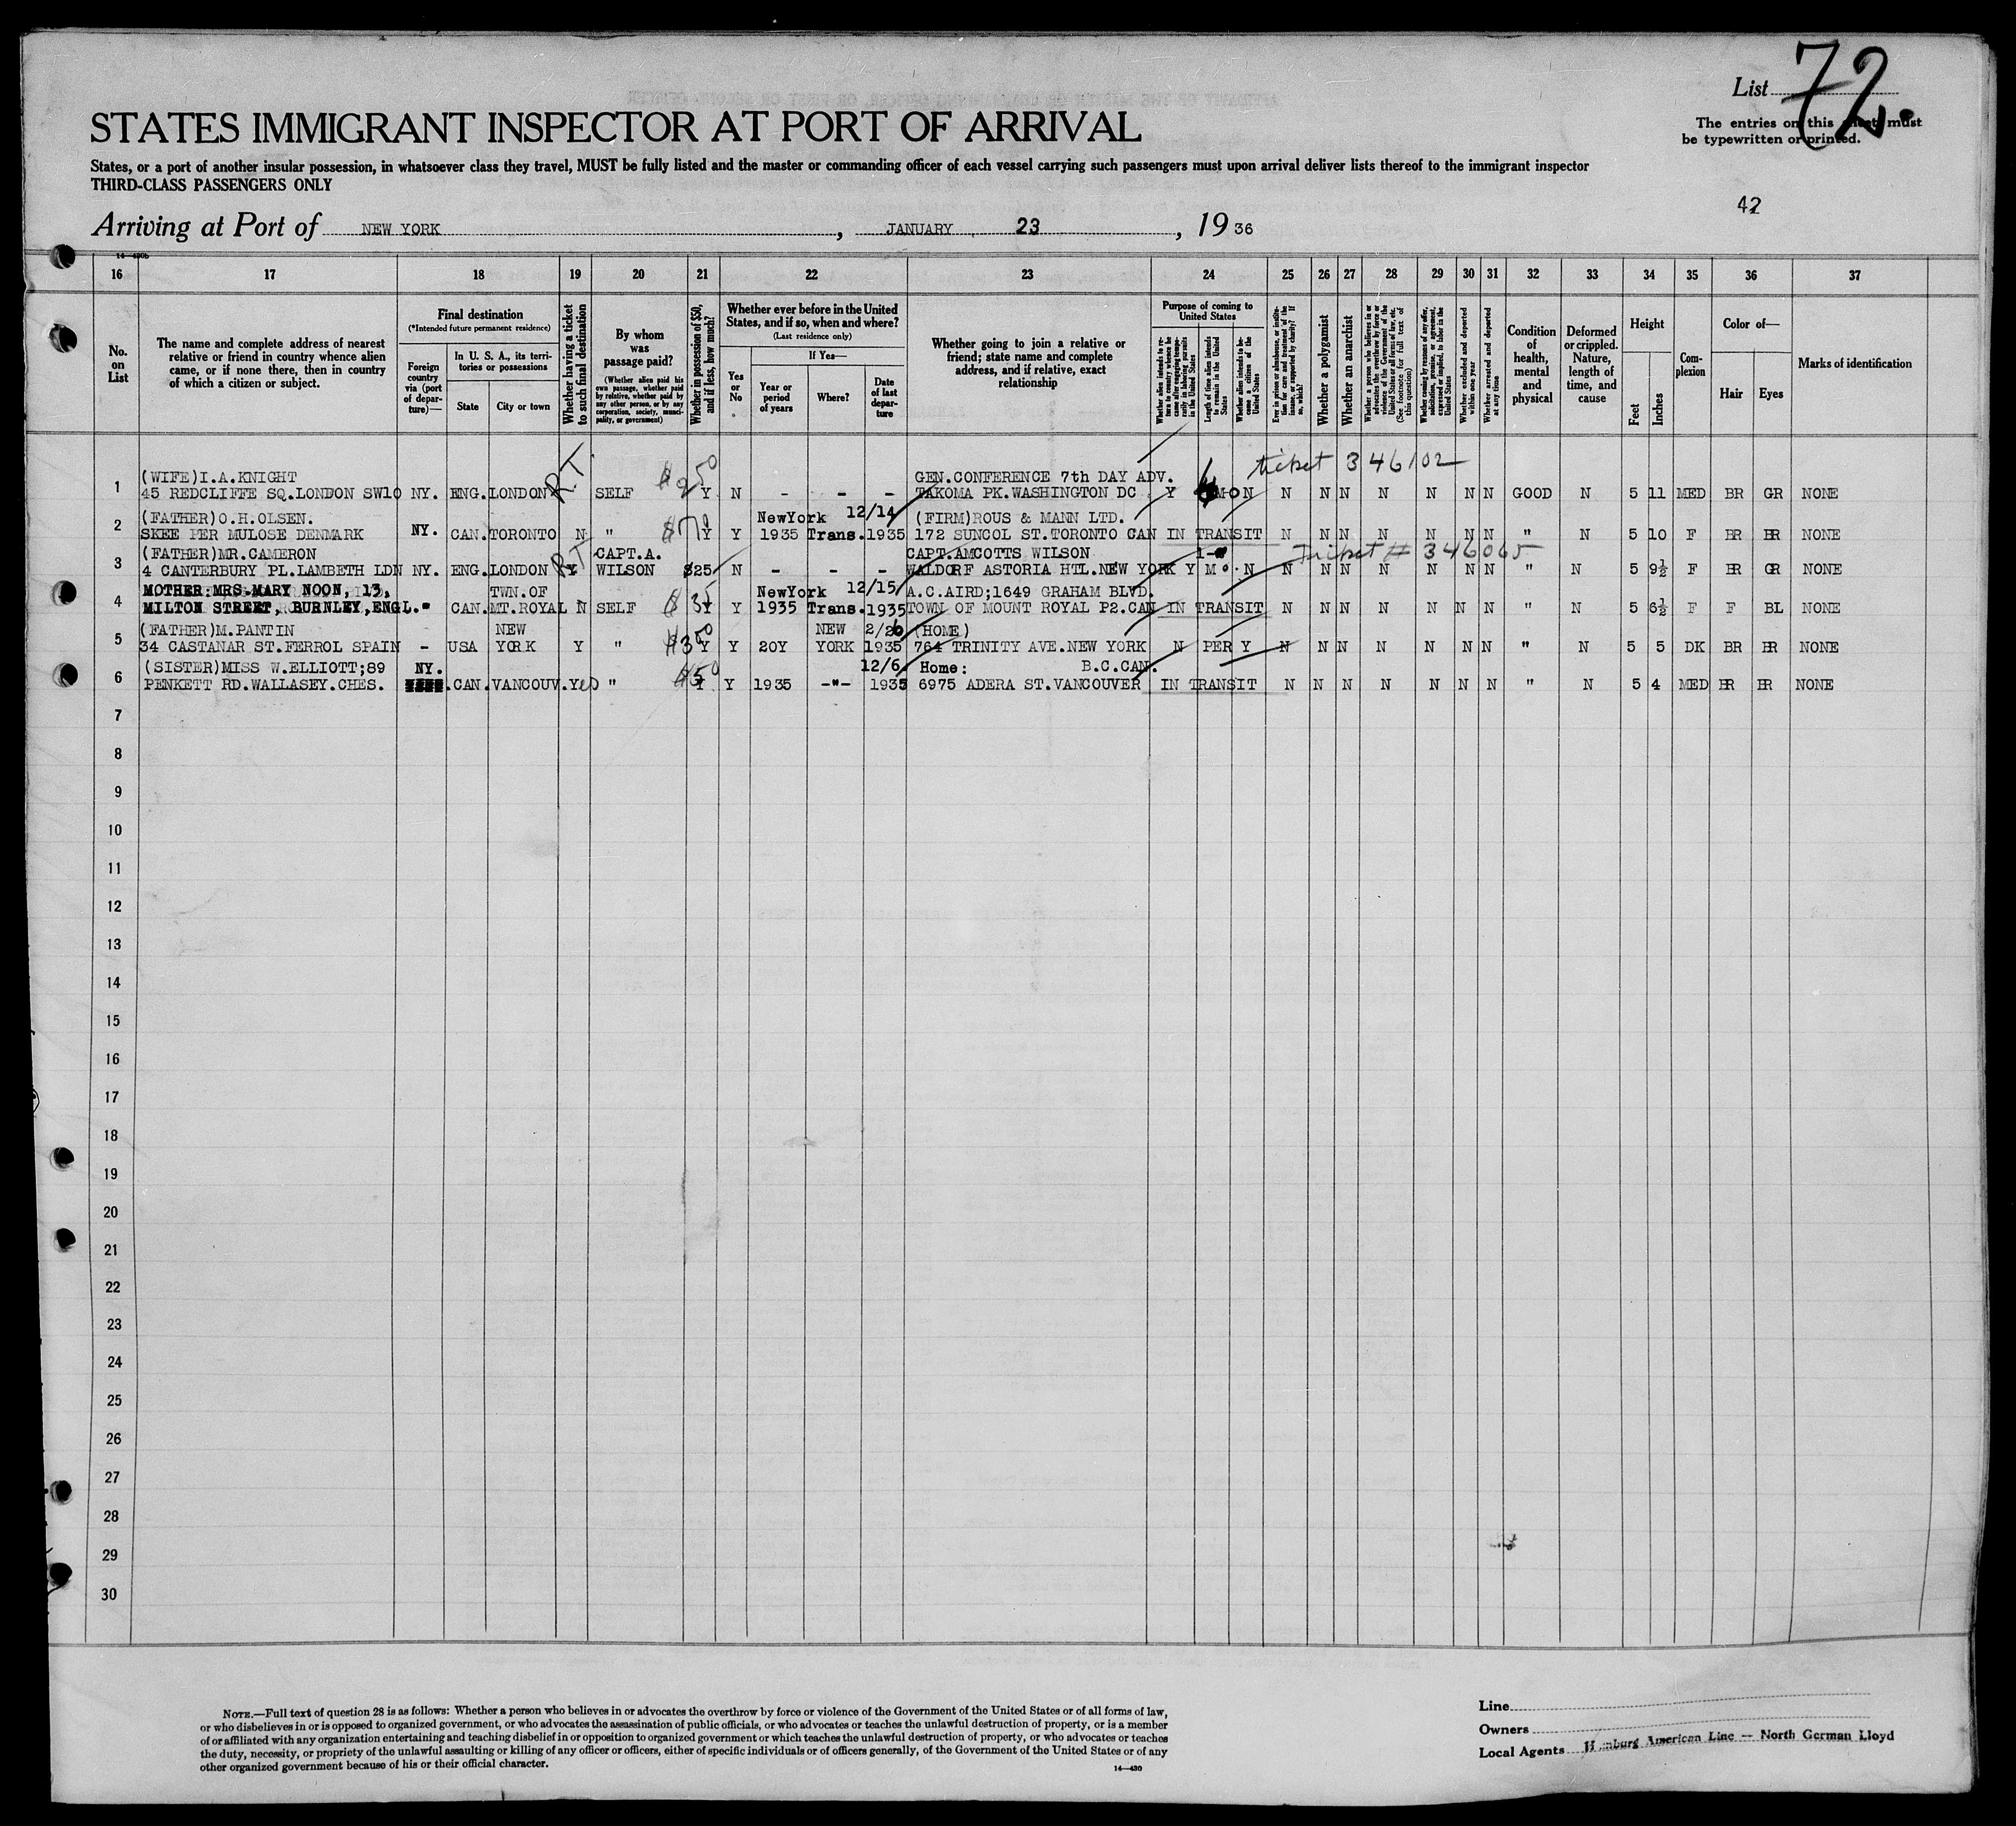 List 72.
The entries on this sheet must
be typewritten or printed.
STATES IMMIGRANT INSPECTOR AT PORT OF ARRIVAL
States, or a port of another insular possession, in whatsoever class they travel, MUST be fully listed and the master or commanding officer of each vessel carrying such passengers must upon arrival deliver lists thereof to the immigrant inspector
THIRD-CLASS PASSENGERS ONLY
42
Arriving at Port of NEW YORK , JANUARY 23 , 19 36
14-430b
16 17 18 19 20 21 22 23 24 25 26 27 28 29 30 31 32 33 34 35 36 37
No. on List
The name and complete address of nearest relative or friend in country whence alien came, or if none there, then in country of which a citizen or subject.
Final destination
(*Intended future permanent residence)
Foreign country via (port of departure)—
In U. S. A., its territories or possessions
State
City or town
Whether having a ticket to such final destination
By whom was passage paid?
(Whether alien paid his own passage, whether paid by relative, whether paid by any other person, or by any corporation, society, municipality, or government)
Whether in possession of $50, and if less, how much?
Whether ever before in the United States, and if so, when and where?
(Last residence only)
Yes or No
If Yes—
Year or period of years
Where?
Date of last departure
Whether going to join a relative or friend; state name and complete address, and if relative, exact relationship
Purpose of coming to United States
Whether alien intends to return to country whence he came after engaging temporarily in laboring pursuits in the United States
Length of time alien intends to remain in the United States
Whether alien intends to become a citizen of the United States
Ever in prison or almshouse, or institution for care and treatment of the insane, or supported by charity? If so, which?
Whether a polygamist
Whether an anarchist
Whether a person who believes in or advocates the overthrow by force or violence of the Government of the United States or all forms of law, etc. (See footnote for full text of this question)
Whether coming by reasons of any offer, solicitation, promise, or agreement, expressed or implied, to labor in the United States
Whether excluded and deported within one year
Whether arrested and deported at any time
Condition of health, mental and physical
Deformed or crippled. Nature, length of time, and cause
Height
Feet
Inches
Complexion
Color of—
Hair
Eyes
Marks of identification
(WIFE)I.A.KNIGHT R.T. $250 GEN.CONFERENCE 7th DAY ADV. 6 ticket 346102
1 45 REDCLIFFE SQ.LONDON SW10 NY. ENG. LONDON SELF Y N - - - TAKOMA PK.WASHINGTON DC Y MO N N N N N N N N GOOD N 5 11 MED BR GR NONE
(FATHER)O.H.OLSEN. NewYork 12/14 (FIRM)ROUS & MANN LTD.
2 SKEE PER MULOSE DENMARK NY. CAN. TORONTO N " Y Y 1935 Trans. 1935 172 SUNCOL ST.TORONTO CAN IN TRANSIT N N N N N N N " N 5 10 F BR BR NONE
(FATHER)MR.CAMERON R.T. CAPT.A. CAPT.AMCOTTS WILSON 1- Ticket # 346065
3 4 CANTERBURY PL.LAMBETH LDN NY. ENG. LONDON Y WILSON $25 N - - - WALDORF ASTORIA HTL.NEW YORK Y MO. N N N N N N N N " N 5 9½ F BR GR NONE
MOTHER:MRS.MARY NOON, 13, TWN.OF NewYork 12/15 A.C.AIRD;1649 GRAHAM BLVD.
4 MILTON STREET, BURNLEY,ENGL. " CAN. MT.ROYAL N SELF $35 Y Y 1935 Trans. 1935 TOWN OF MOUNT ROYAL P2.CAN IN TRANSIT N N N N N N N " N 5 6½ F F BL NONE
(FATHER)M.PANTIN NEW NEW 2/26 (HOME)
5 34 CASTANAR ST.FERROL SPAIN - USA YORK Y " $350 Y Y 20Y YORK 1935 764 TRINITY AVE.NEW YORK N PER Y N N N N N N N " N 5 5 DK BR BR NONE
(SISTER)MISS W.ELLIOTT;89 NY. 12/6 Home: B.C.CAN.
6 PENKETT RD.WALLASEY.CHES. CAN. VANCOUV. Yes " $50 Y Y 1935 -"- 1935 6975 ADERA ST.VANCOUVER IN TRANSIT N N N N N N N " N 5 4 MED BR BR NONE
7
8
9
10
11
12
13
14
15
16
17
18
19
20
21
22
23
24
25
26
27
28
29
30
NOTE.—Full text of question 28 is as follows: Whether a person who believes in or advocates the overthrow by force or violence of the Government of the United States or of all forms of law,
or who disbelieves in or is opposed to organized government, or who advocates the assassination of public officials, or who advocates or teaches the unlawful destruction of property, or is a member
of or affiliated with any organization entertaining and teaching disbelief in or opposition to organized government or which teaches the unlawful destruction of property, or who advocates or teaches
the duty, necessity, or propriety of the unlawful assaulting or killing of any officer or officers, either of specific individuals or of officers generally, of the Government of the United States or of any
other organized government because of his or their official character.
14—430
Line
Owners
Local Agents Hamburg American Line — North German Lloyd